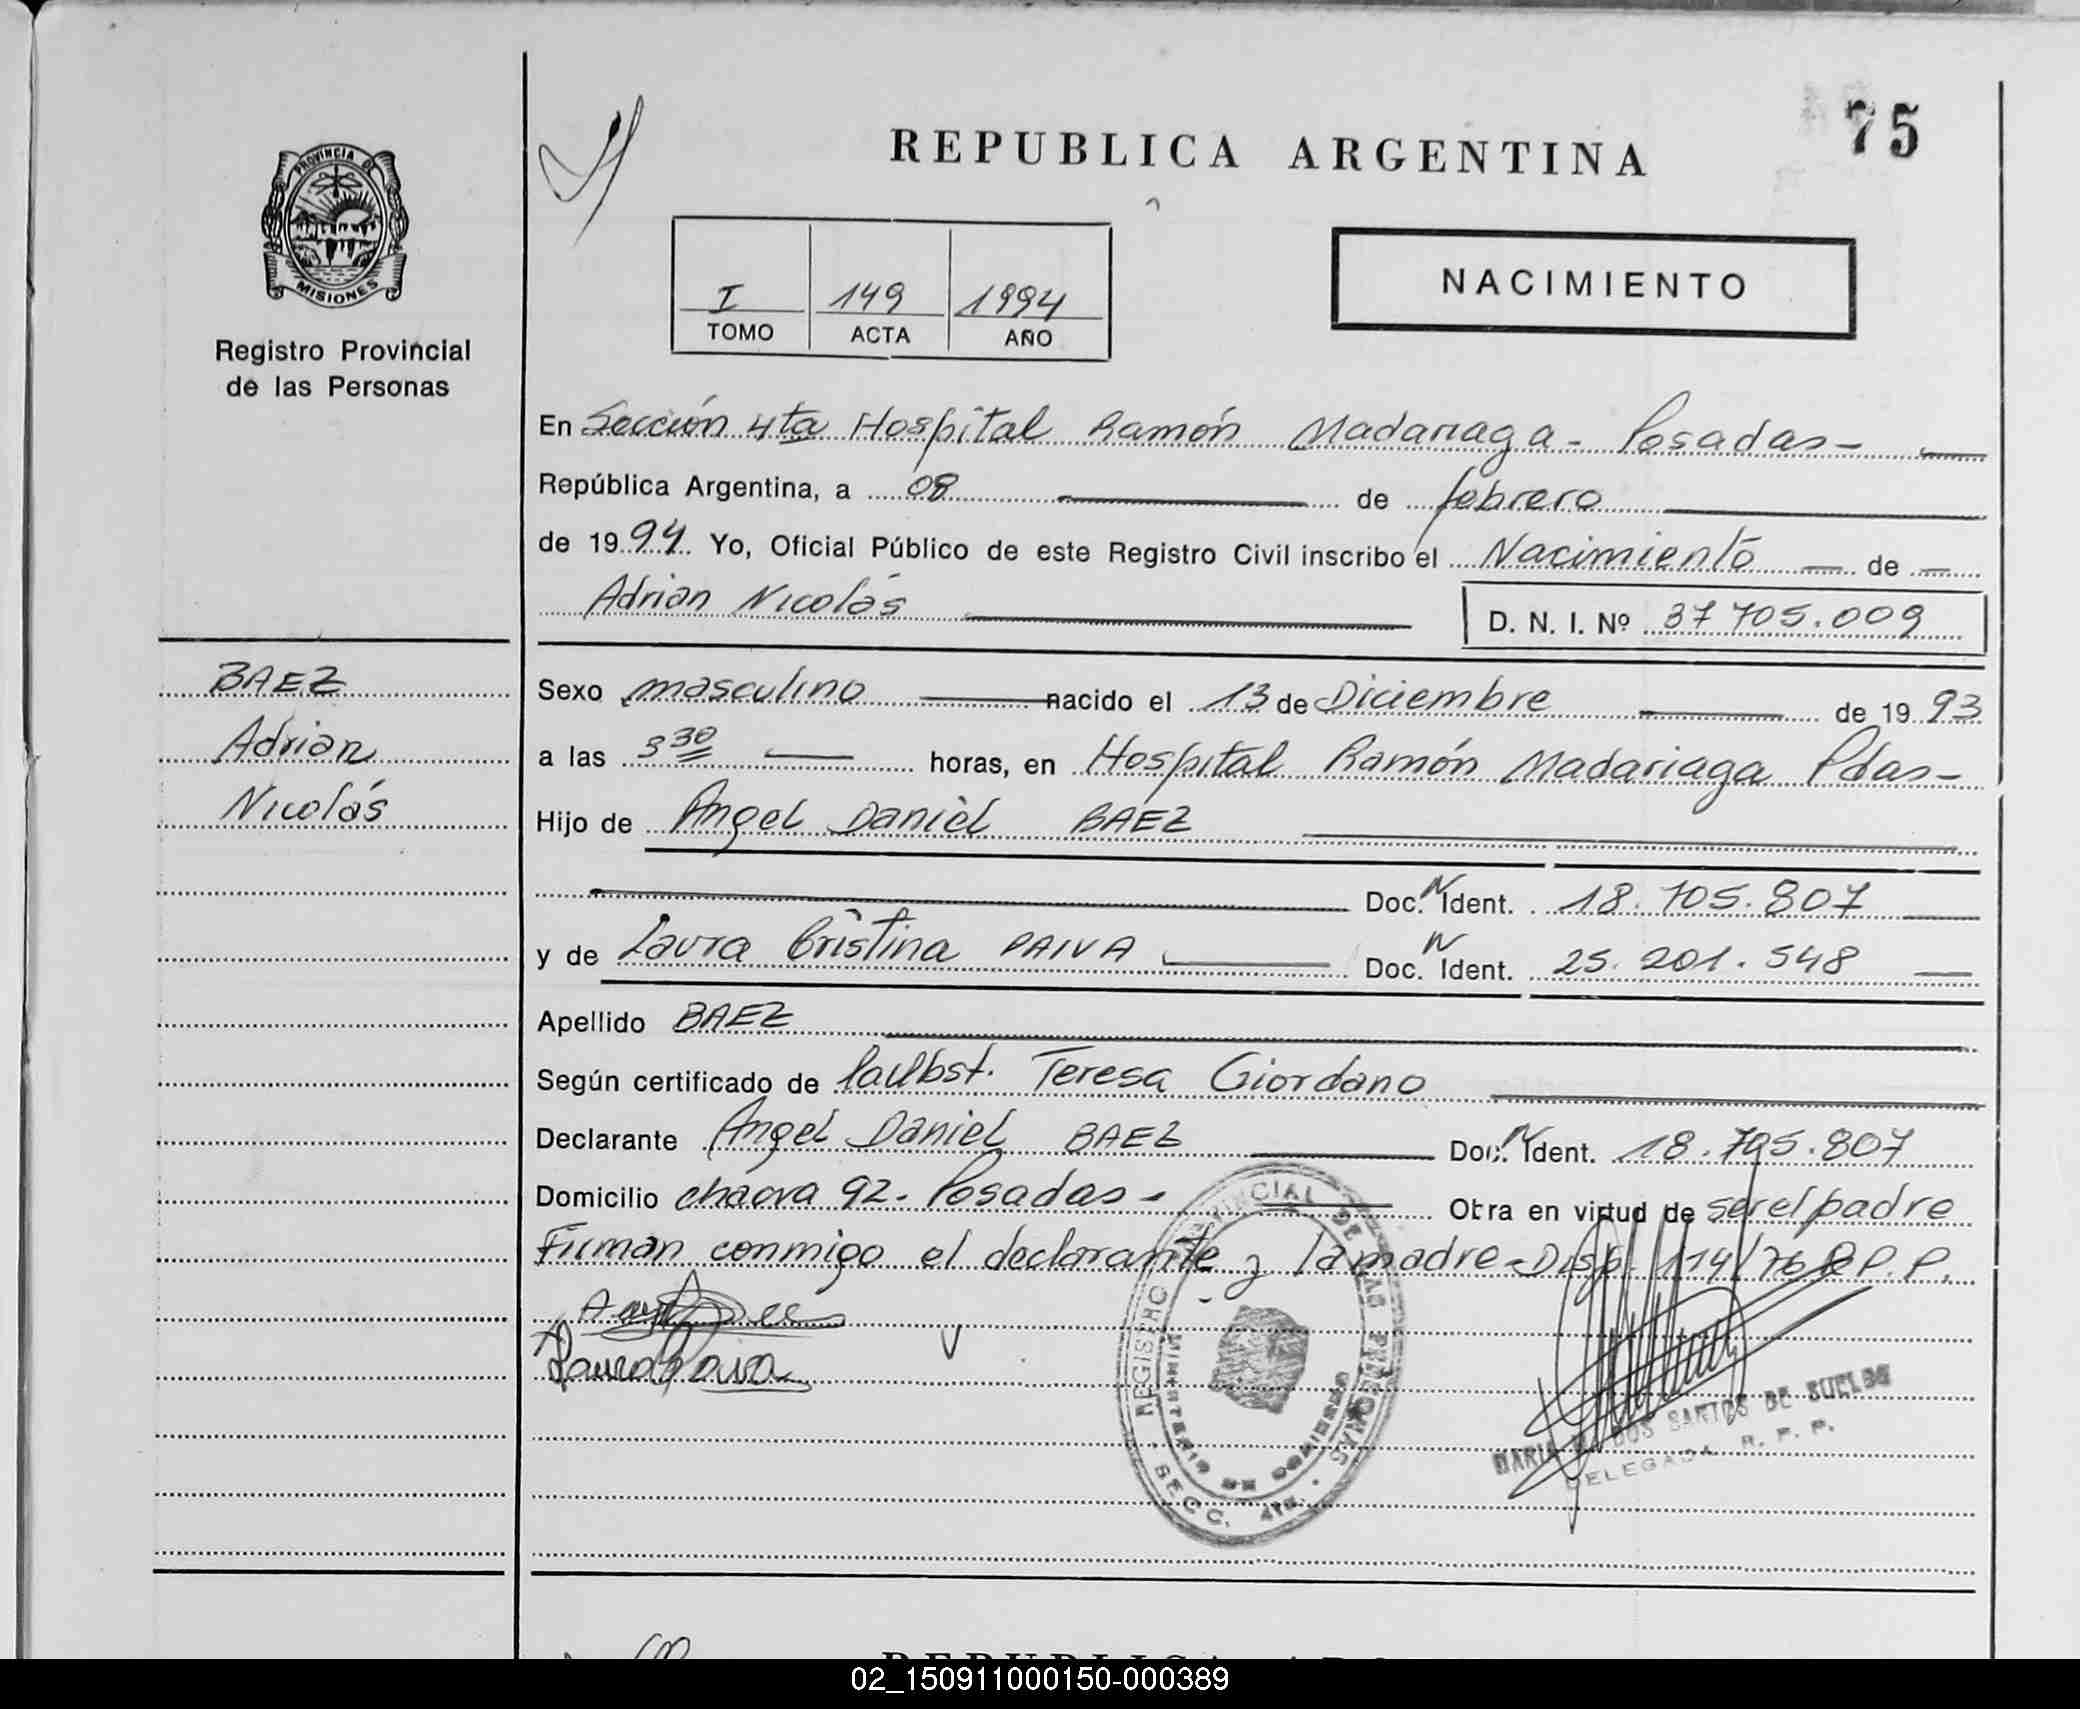 REPUBLICA ARGENTINA
75
PROVINCIA DE
MISIONES
Registro Provincial
de las Personas
I 149 1994
TOMO ACTA AÑO
NACIMIENTO
En Sección 4ta Hospital Ramón Madariaga - Posadas -
República Argentina, a 08 de febrero
de 1994. Yo, Oficial Público de este Registro Civil inscribo el Nacimiento de
Adrian Nicolás
D. N. I. Nº 37 705.009
BAEZ
Adrian
Nicolás
Sexo masculino nacido el 13 de Diciembre de 1993
a las 3 30 horas, en Hospital Ramón Madariaga Pdas-
Hijo de Angel Daniel BAEZ
Doc. N Ident. 18.705.807
y de Laura Cristina PAIVA Doc. N Ident. 25.201.548
Apellido BAEZ
Según certificado de Teresa Giordano
Declarante Angel Daniel BAEZ Doc. N Ident. 18.705.807
Domicilio chacra 92. Posadas - Otra en virtud de ser el padre
Firman conmigo el declarante y la madre - Disp. 114/76 R.P.P.
Laura Paiva
REGISTRO PROVINCIAL DE LAS PERSONAS
MINISTERIO DE GOBIERNO
SECC. 4ta.
MARIA DOS SANTOS DE SUELDO
DELEGADA R. P. P.
02_150911000150-000389